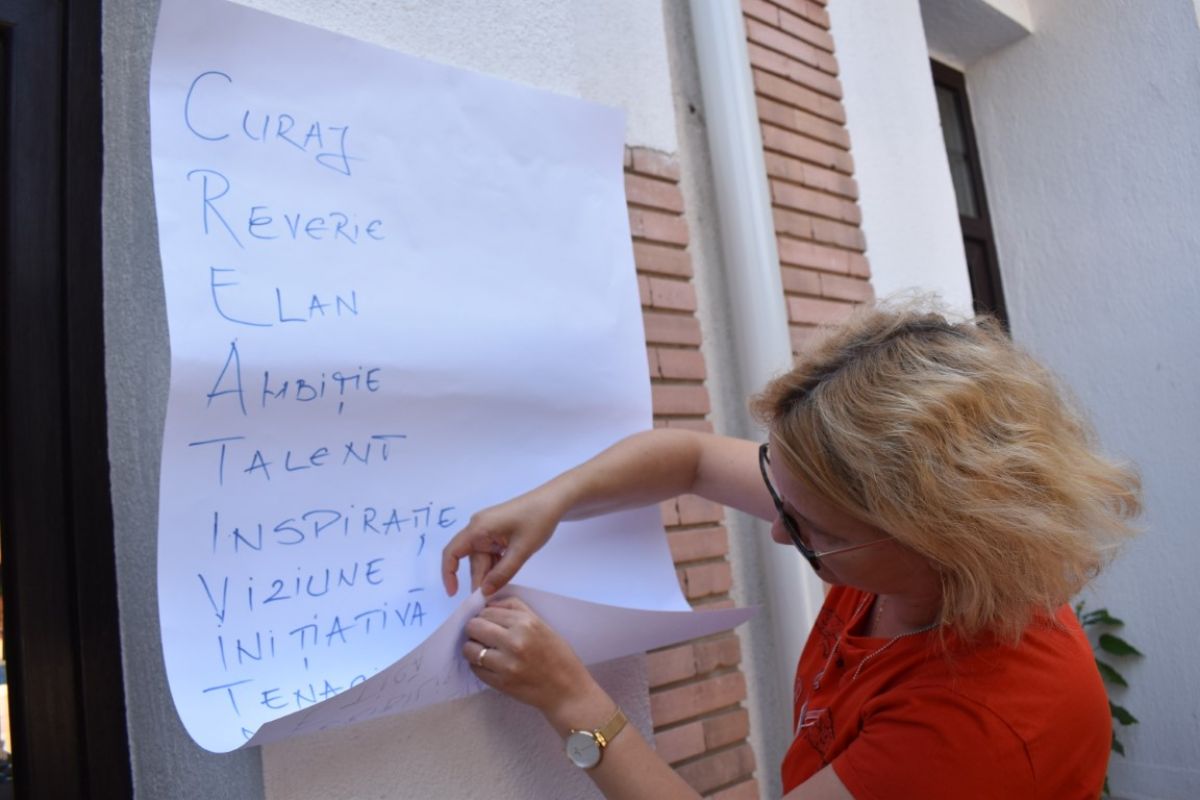 CURAJ
REVERIE
ELAN
AMBIȚIE
TALENT
INSPIRAȚIE
VIZIUNE
INIȚIATIVĂ